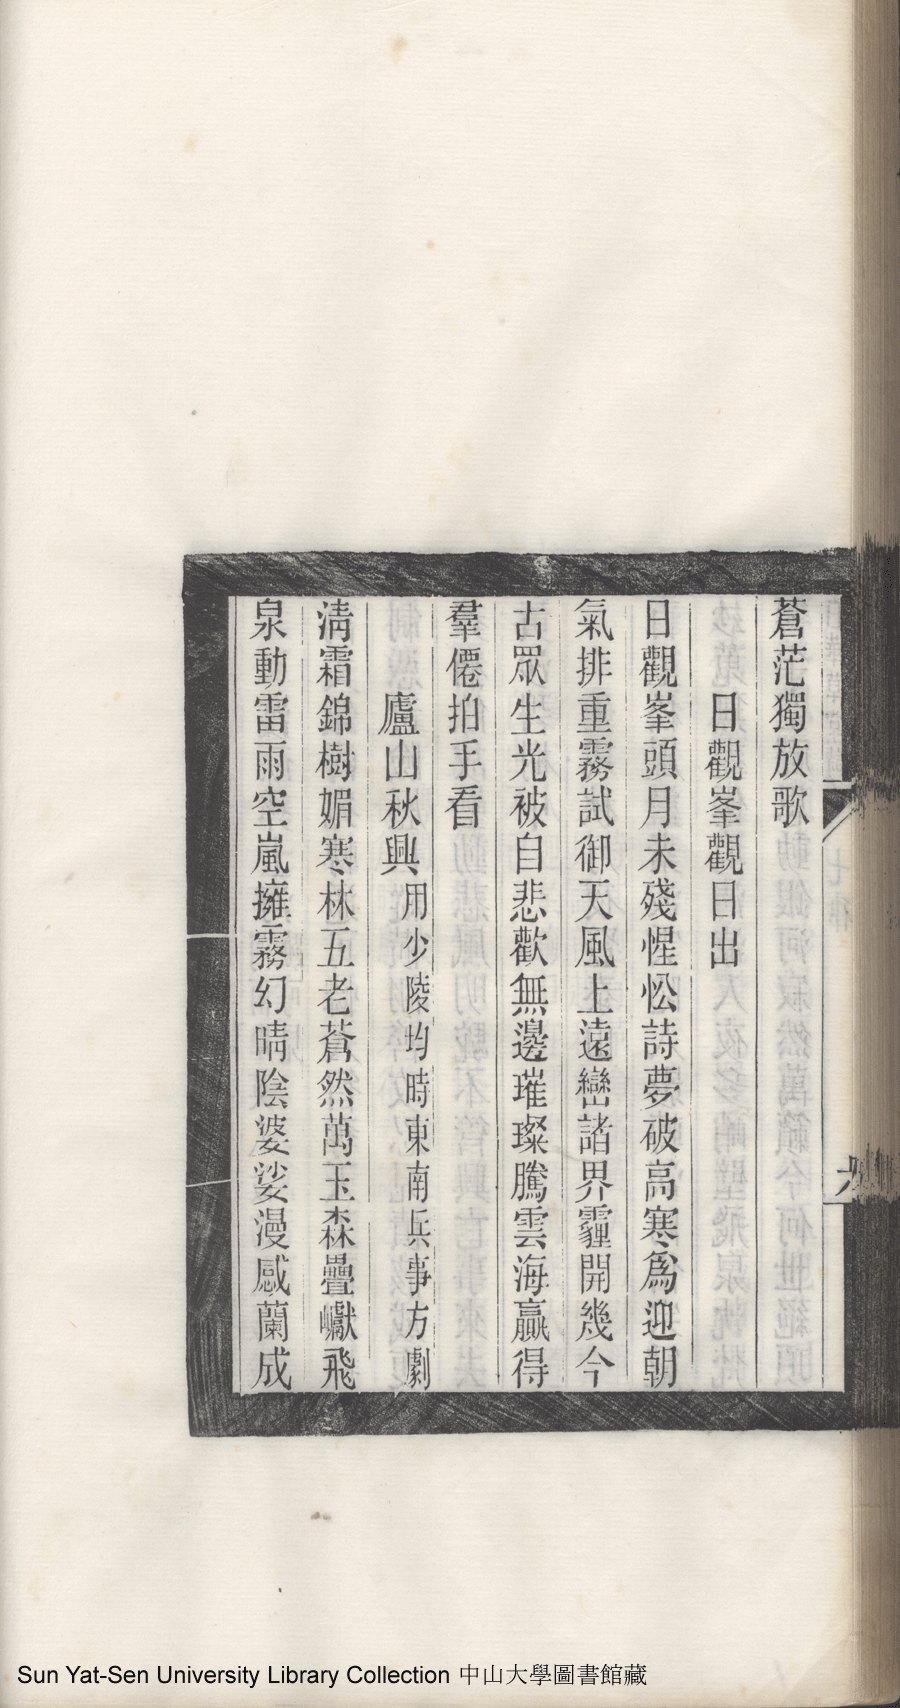 蒼茫獨放歌
日觀峯觀日出
日觀峯頭月未殘惺忪詩夢破高寒爲迎朝
氣排重霧試御天風上遠巒諸界霾開幾今
古眾生光被自悲歡無邊璀璨騰雲海贏得
羣僊拍手看
廬山秋興用少陵均時東南兵事方劇
淸霜錦樹媚寒林五老蒼然萬玉森疊巘飛
泉動雷雨空嵐擁霧幻晴陰婆娑漫感蘭成
Sun Yat-Sen University Library Collection 中山大學圖書館藏